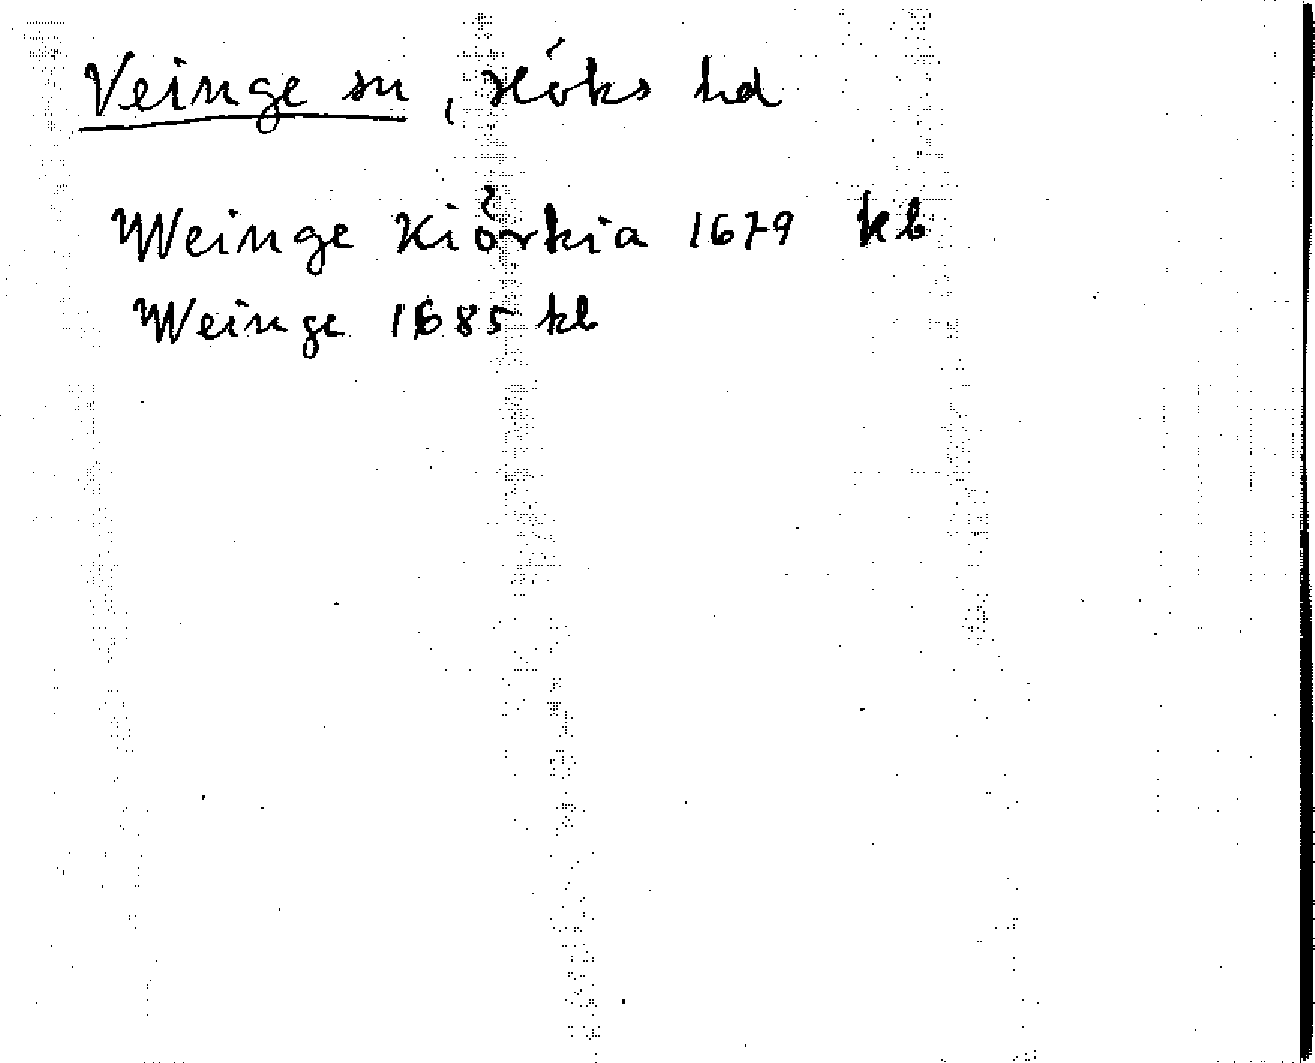 Veinge sn, Höks hd
Weinge Kiörkia 1679 kb
Weinge 1685 kb